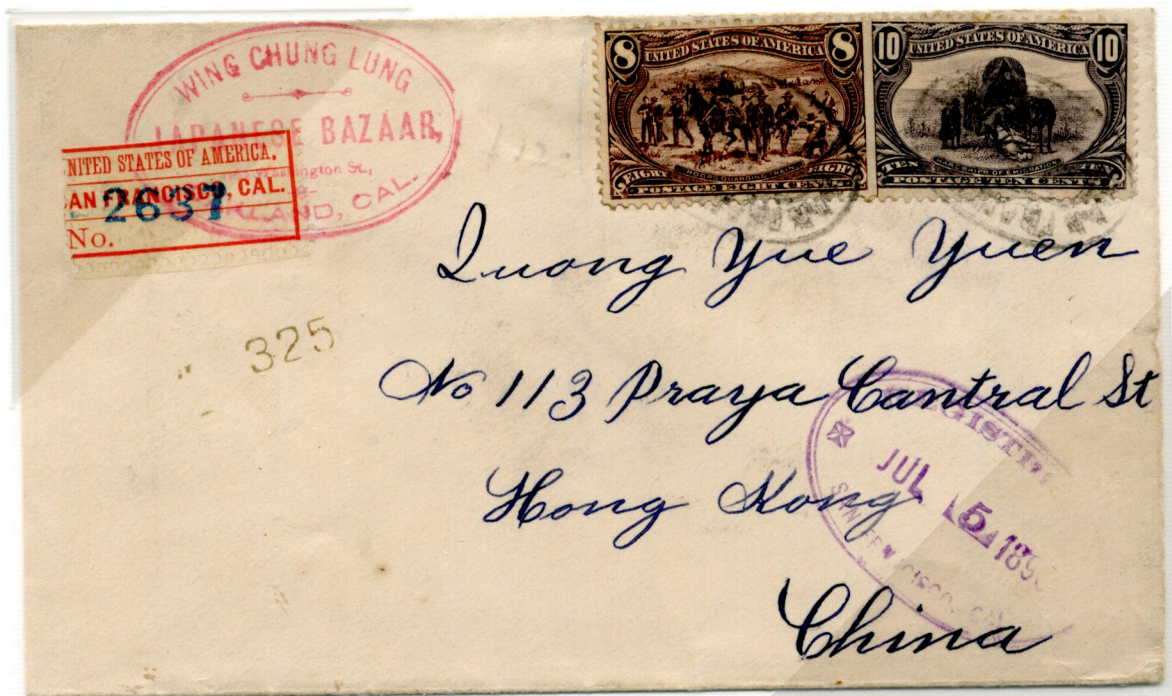 WING CHUNG LUNG
JAPANESE BAZAAR,
Washington St.,
LAND, CAL.
NITED STATES OF AMERICA.
AN FRANCISCO, CAL.
2637
No.
8 UNITED STATES OF AMERICA 8
EIGHT EIGHT
POSTAGE EIGHT CENTS
10 UNITED STATES OF AMERICA 10
TEN TEN
POSTAGE TEN CENTS
325
Quong Yue Yuen
No 113 Praya Cantral St
Hong Kong
China
REGISTER
JUL 5 189
SAN FRANCISCO, CAL